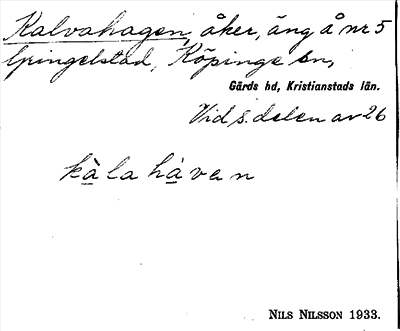 Kalvahagen, åker, äng å nr 5
Gringelstad, Köpinge sn,
Gärds hd, Kristianstads län.
Vid s. delen av 26
kàlahàven
NILS NILSSON 1933.